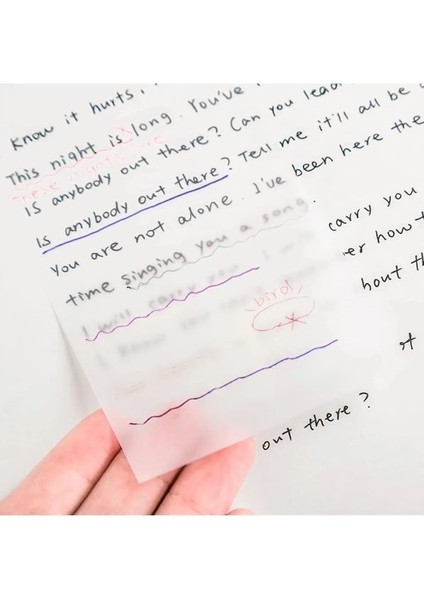 Know it hurts,
This night is long. You've
Is anybody out there? Can you lead
Is anybody out there? Tell me it'll all be
You are not alone. I've been here the
time singing you a song.
carry you
I will carry you
er how t
bird
hout th
out there?